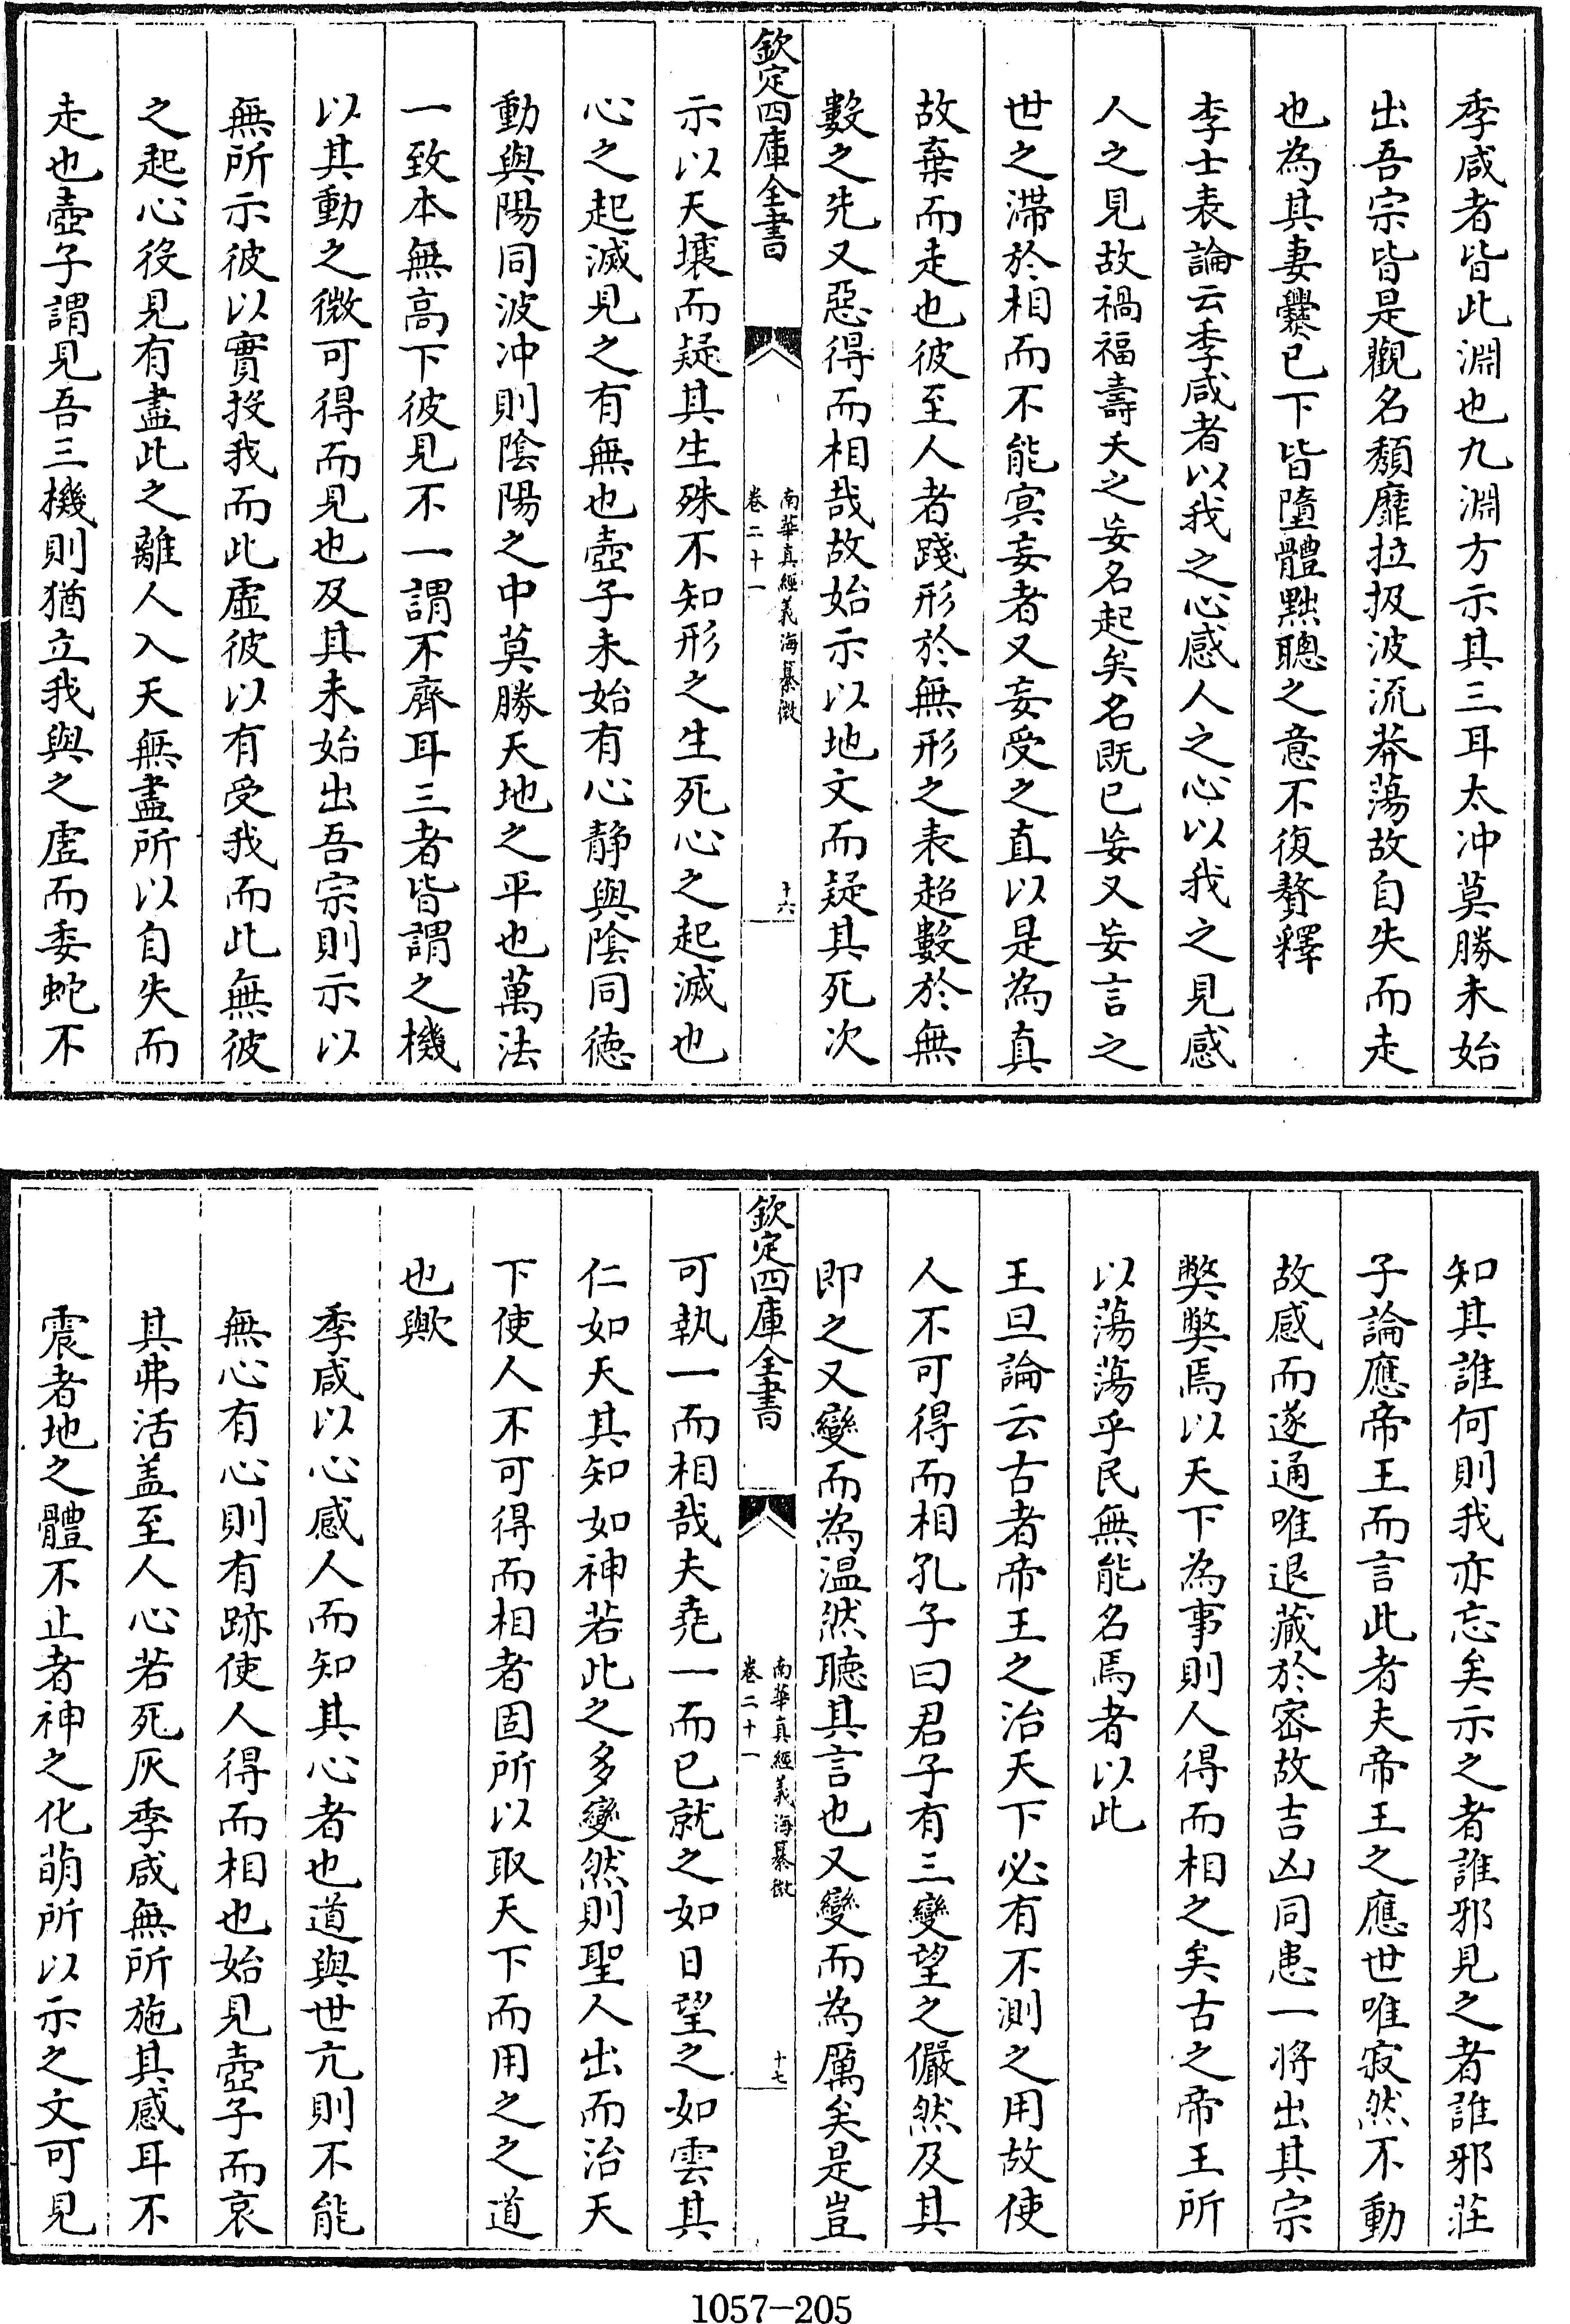 季咸者皆此淵也九淵方示其三耳太冲莫勝未始
出吾宗皆是觀名頽靡拉扱波流莽蕩故自失而走
也為其妻爨已下皆墮體黜聰之意不復贅釋
李士表論云季咸者以我之心感人之心以我之見感
人之見故禍福壽夭之妄名起矣名既已妄又妄言之
世之滯於相而不能冥妄者又妄受之直以是為真
故棄而走也彼至人者踐形於無形之表超數於無
數之先又惡得而相哉故始示以地文而疑其死次
欽定四庫全書
南華真經義海纂微
卷二十一
十六
示以天壤而疑其生殊不知形之生死心之起滅也
心之起滅見之有無也壺子未始有心静與陰同德
動與陽同波冲則陰陽之中莫勝天地之平也萬法
一致本無高下彼見不一謂不齊耳三者皆謂之機
以其動之微可得而見也及其未始出吾宗則示以
無所示彼以實投我而此虛彼以有受我而此無彼
之起心役見有盡此之離人入天無盡所以自失而
走也壺子謂見吾三機則猶立我與之虛而委蛇不
知其誰何則我亦忘矣示之者誰邪見之者誰邪莊
子論應帝王而言此者夫帝王之應世唯寂然不動
故感而遂通唯退藏於密故吉凶同患一將出其宗
弊弊焉以天下為事則人得而相之矣古之帝王所
以蕩蕩乎民無能名焉者以此
王旦論云古者帝王之治天下必有不測之用故使
人不可得而相孔子曰君子有三變望之儼然及其
即之又變而為温然聽其言也又變而為厲矣是豈
欽定四庫全書
南華真經義海纂微
卷二十一
十七
可執一而相哉夫堯一而已就之如日望之如雲其
仁如天其知如神若此之多變然則聖人出而治天
下使人不可得而相者固所以取天下而用之之道
也歟
季咸以心感人而知其心者也道與世亢則不能
無心有心則有跡使人得而相也始見壺子而哀
其弗活盖至人心若死灰季咸無所施其感耳不
震者地之體不止者神之化萌所以示之文可見
1057-205